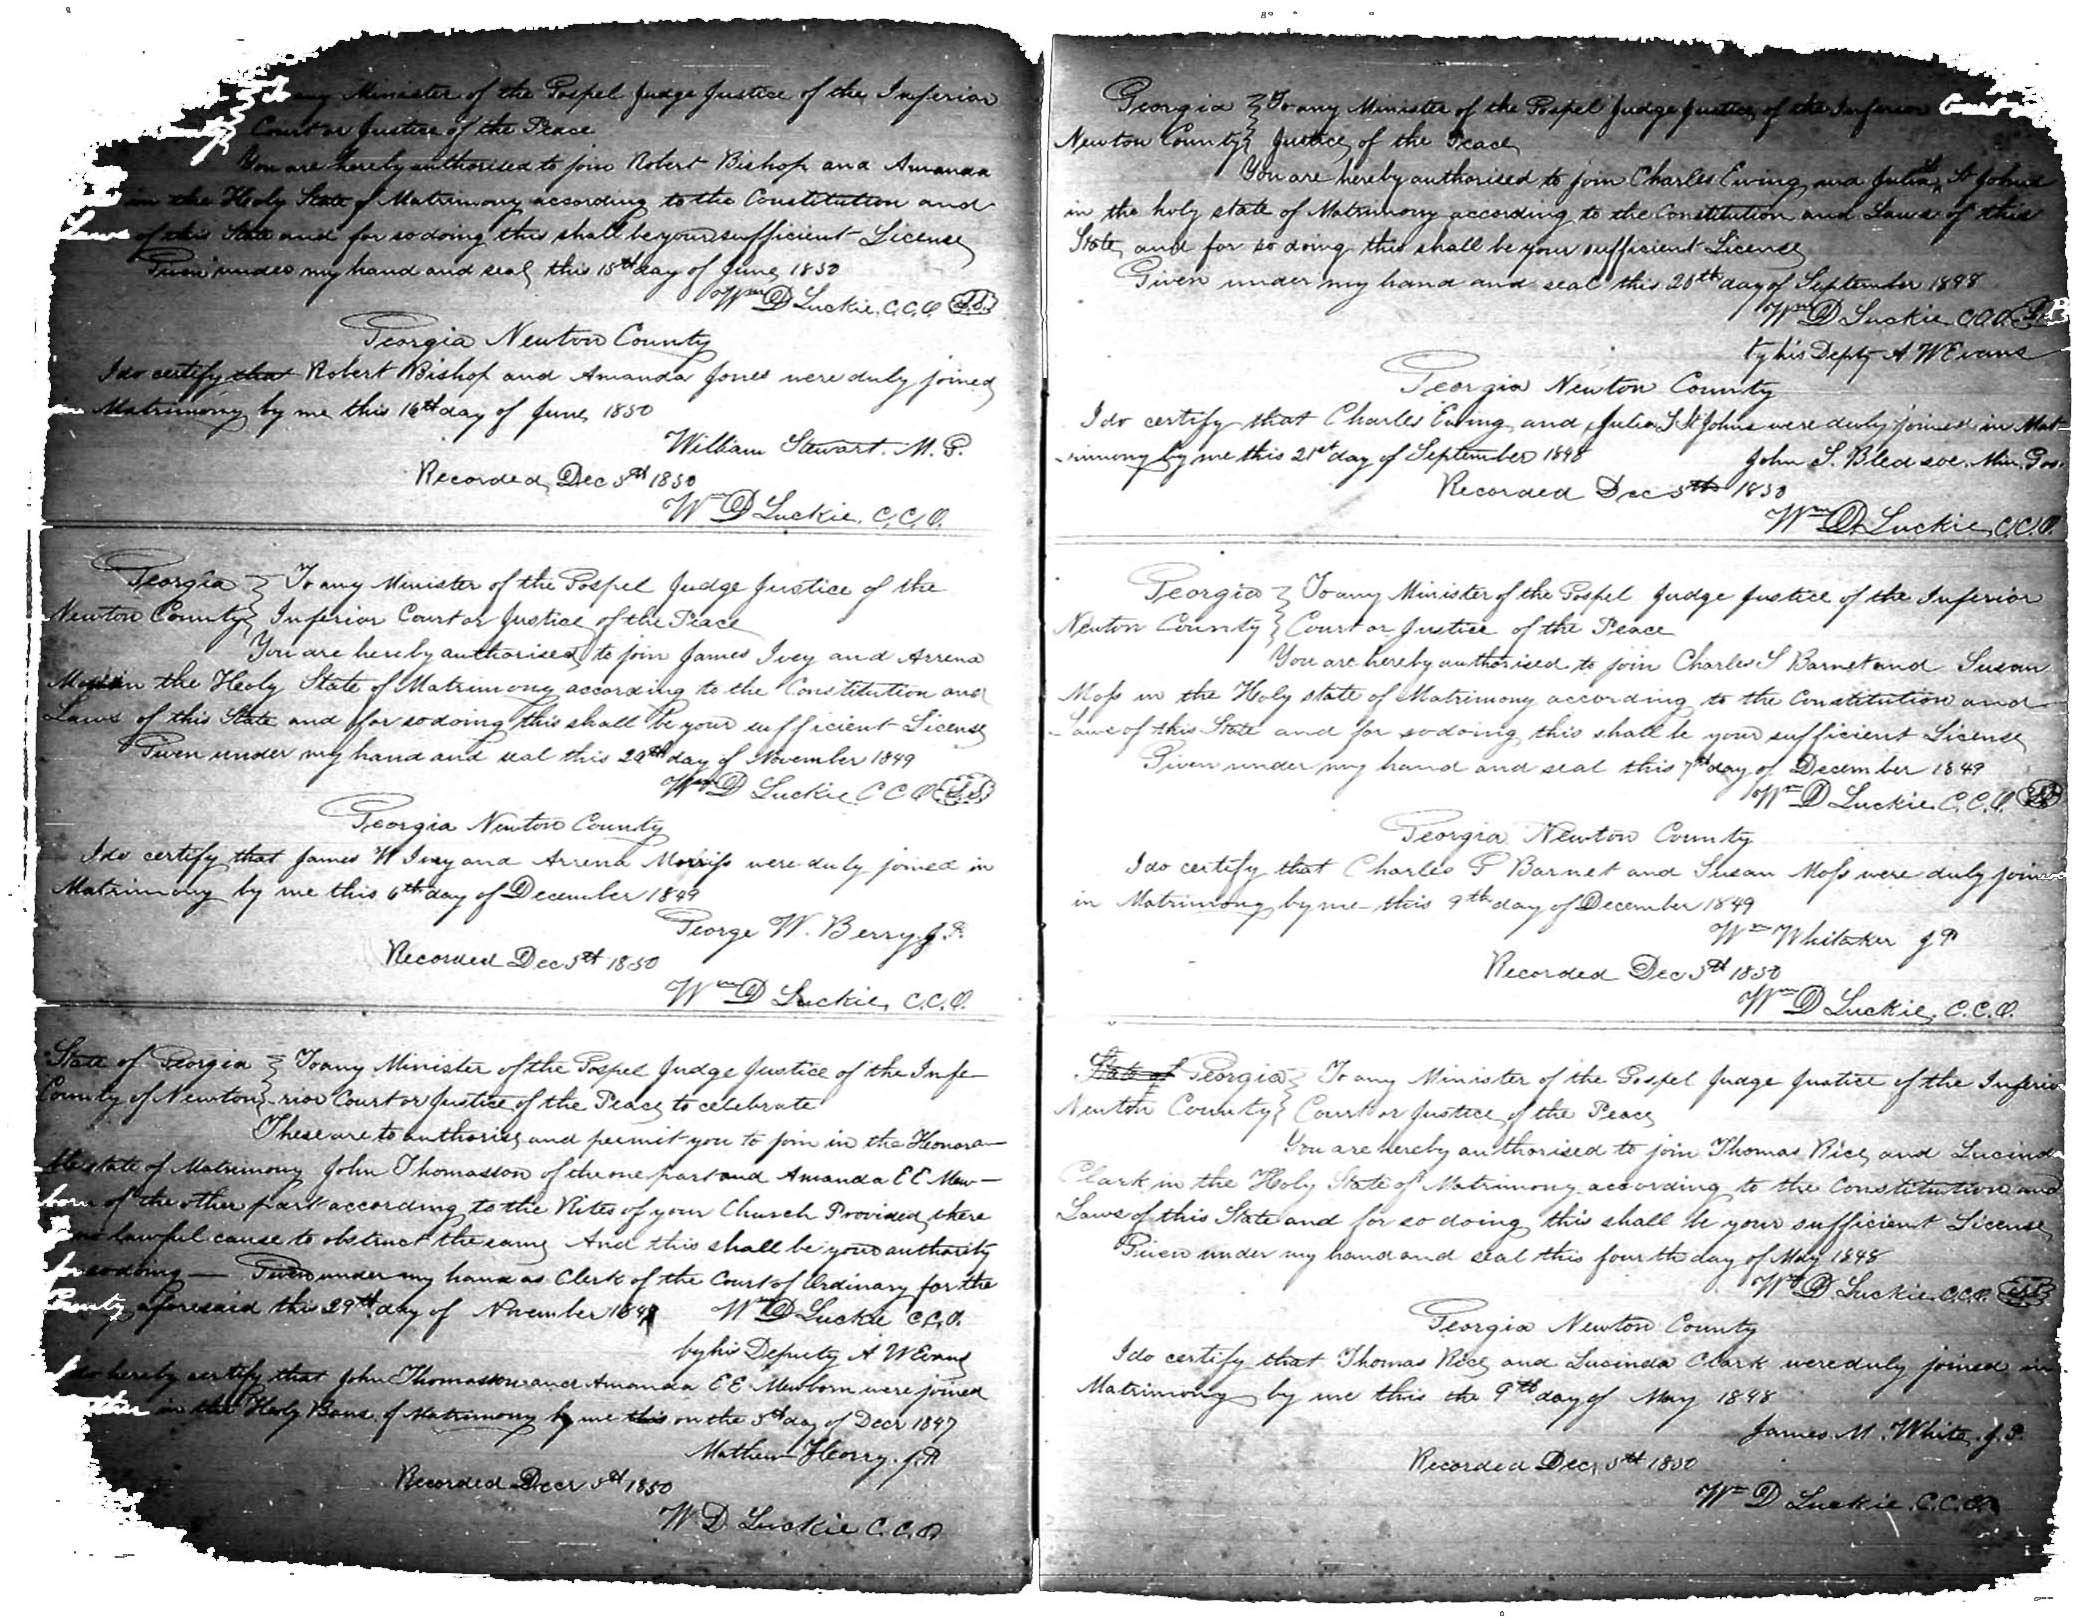 any Minister of the Gospel Judge Justice of the Inferior
Court or Justice of the Peace
You are hereby authorised to join Robert Bishop and Amanda
in the Holy State of Matrimony according to the Constitution and
Laws of this State and for so doing this shall be your sufficient License
Given under my hand and seal this 15th day of June 1850
Wm D Luckie. C.C.O. L.S.
Georgia Newton County
I do certify that Robert Bishop and Amanda Jones were duly joined
in Matrimony by me this 16th day of June 1850
William Stewart. M. G.
Recorded Dec 5th 1850
Wm D Luckie. C.C.O.
Georgia } To any Minister of the Gospel Judge Justice of the
Newton County } Inferior Court or Justice of the Peace
You are hereby authorised to join James Ivey and Arrena
in the Holy State of Matrimony according to the Constitution and
Laws of this State and for so doing this shall be your sufficient License
Given under my hand and seal this 29th day of November 1849
Wm D Luckie C C O L.S.
Georgia Newton County
I do certify that James W Ivey and Arrena were duly joined in
Matrimony by me this 6th day of December 1849
George W. Berry J.P.
Recorded Dec 5th 1850
Wm D Luckie, C.C.O.
State of Georgia } To any Minister of the Gospel Judge Justice of the Infe-
County of Newton } -rior Court or Justice of the Peace to celebrate
These are to authorise and permit you to join in the Honora-
ble state of Matrimony John Thomasson of the one part and Amanda E E New-
born of the other part according to the Rites of your Church Provided there
no lawful cause to obstruct the same And this shall be your authority
for so doing — Given under my hand as Clerk of the Court of Ordinary for the
County aforesaid this 29th day of November 1847 Wm D Luckie C.C.O.
by his Deputy A W Evans
I do hereby certify that John Thomasson and Amanda E E Newborn were joined
in the Holy Bans of Matrimony by me this on the 5th day of Decr 1847
Mathew Henry. J.P.
Recorded Decr 5th 1850
W D Luckie C.C.O.
Georgia } To any Minister of the Gospel Judge Justice of the Inferior Court or
Newton County } Justice of the Peace
You are hereby authorised to join Charles Ewing and Julia S St Johns
in the holy state of Matrimony according to the Constitution and Laws of this
State and for so doing this shall be your sufficient License
Given under my hand and seal this 20th day of September 1848
Wm D Luckie C.C.O.
by his Depty A W Evans
Georgia Newton County
I do certify that Charles Ewing and Julia S St Johns were duly joined in Mat-
-rimony by me this 21st day of September 1848 John S. Bledsoe. Min. Gos.
Recorded Dec 5th 1850
Wm D. Luckie, C.C.O.
Georgia } To any Minister of the Gospel Judge Justice of the Inferior
Newton County } Court or Justice of the Peace
You are hereby authorised to join Charles S Barnet and Susan
Moss in the Holy state of Matrimony according to the Constitution and
Laws of this State and for so doing this shall be your sufficient License
Given under my hand and seal this 7th day of December 1849
Wm D Luckie C.C.O. L.S.
Georgia Newton County
I do certify that Charles Barnet and Susan Moss were duly joined
in Matrimony by me this 9th day of December 1849
Wm Whitaker J P
Recorded Dec 5th 1850
Wm D Luckie, C.C.O.
State of Georgia } To any Minister of the Gospel Judge Justice of the Inferior
Newton County } Court or Justice of the Peace
You are hereby authorised to join Thomas Rice and Lucinda
Clark in the Holy State of Matrimony according to the Constitution and
Laws of this State and for so doing this shall be your sufficient License
Given under my hand and seal this fourth day of May 1848
Wm D Luckie C.C.O. L.S.
Georgia Newton County
I do certify that Thomas Rice and Lucinda Clark were duly joined in
Matrimony by me this the 9th day of May 1848
James M. White, J.P.
Recorded Dec, 5th 1850
Wm D Luckie. C.C.O.